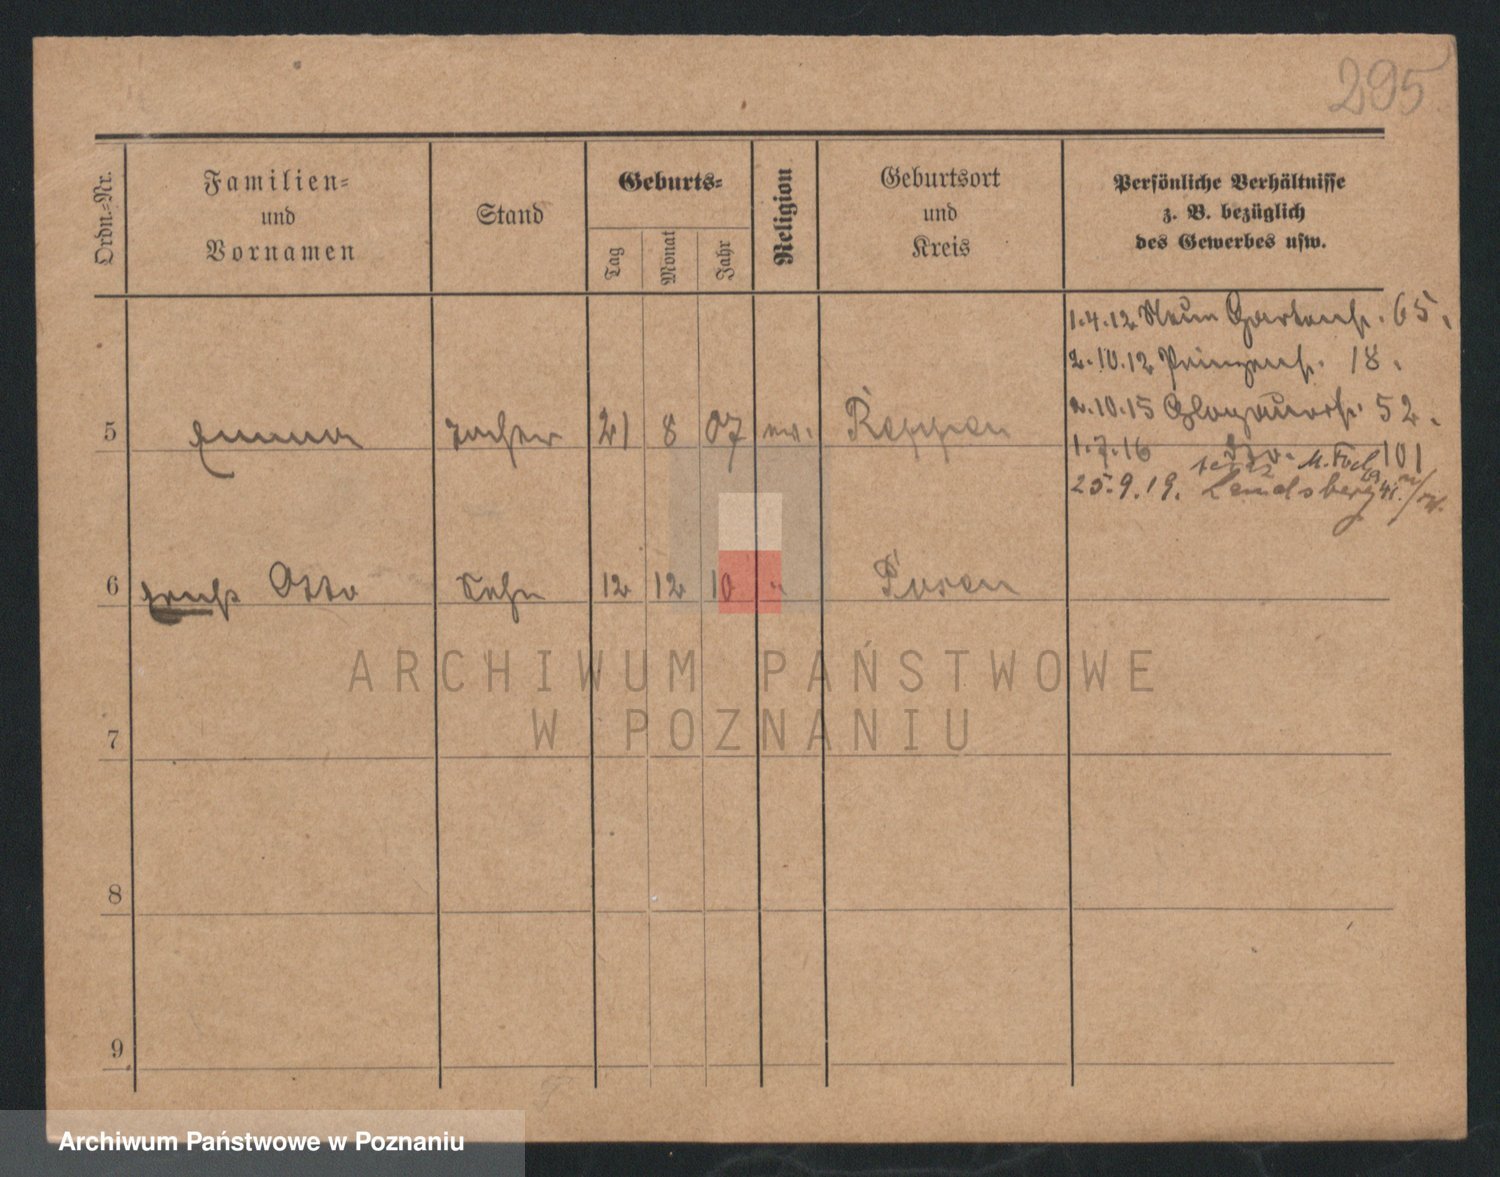 295
Ordn.-Nr.
Familien-
und
Vornamen
Stand
Geburts-
Tag
Monat
Jahr
Religion
Geburtsort
und
Kreis
Persönliche Verhältnisse
z. B. bezüglich
des Gewerbes usw.
1.4.12 Neue Gartenstr. 65.
2.10.12 Prinzenstr. 18.
2.10.15 Glogauerstr. 52.
5 Emma Tochter 21 8 07 ev. Reppen
1.7.16 dto. 101
25.9.19. Landsberg
6 Otto Sohn 12 12 10 " Posen
7
8
9
ARCHIWUM PAŃSTWOWE
W POZNANIU
Archiwum Państwowe w Poznaniu